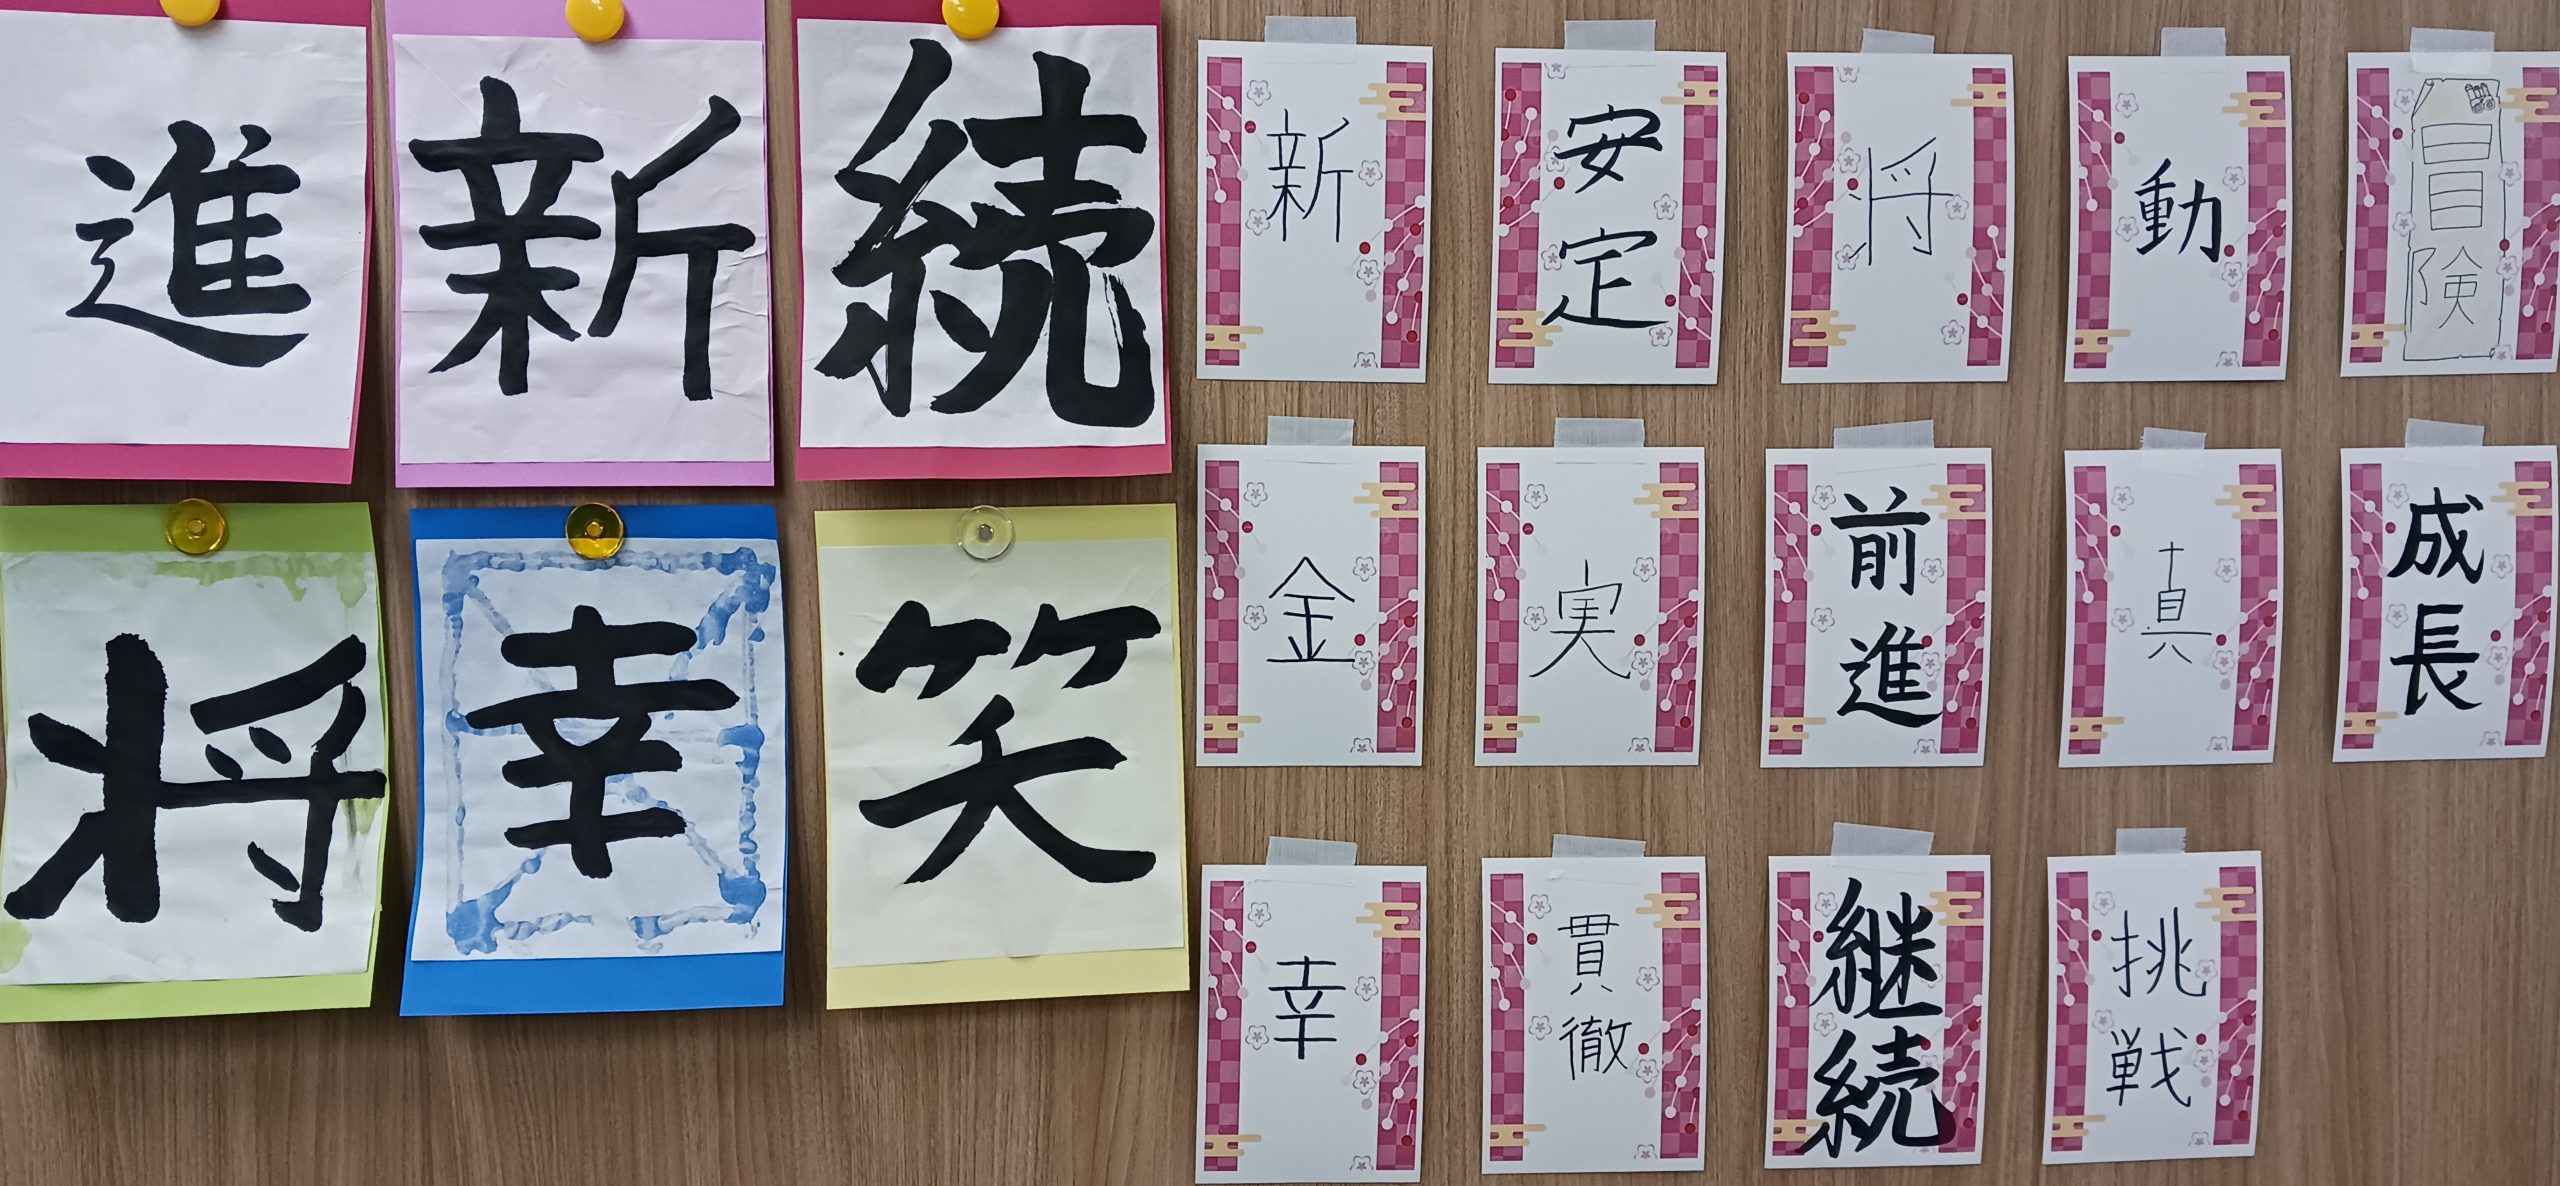 進
新
続
将
幸
笑
新
安定
将
動
冒険
金
実
前進
真
成長
幸
貫徹
継続
挑戦